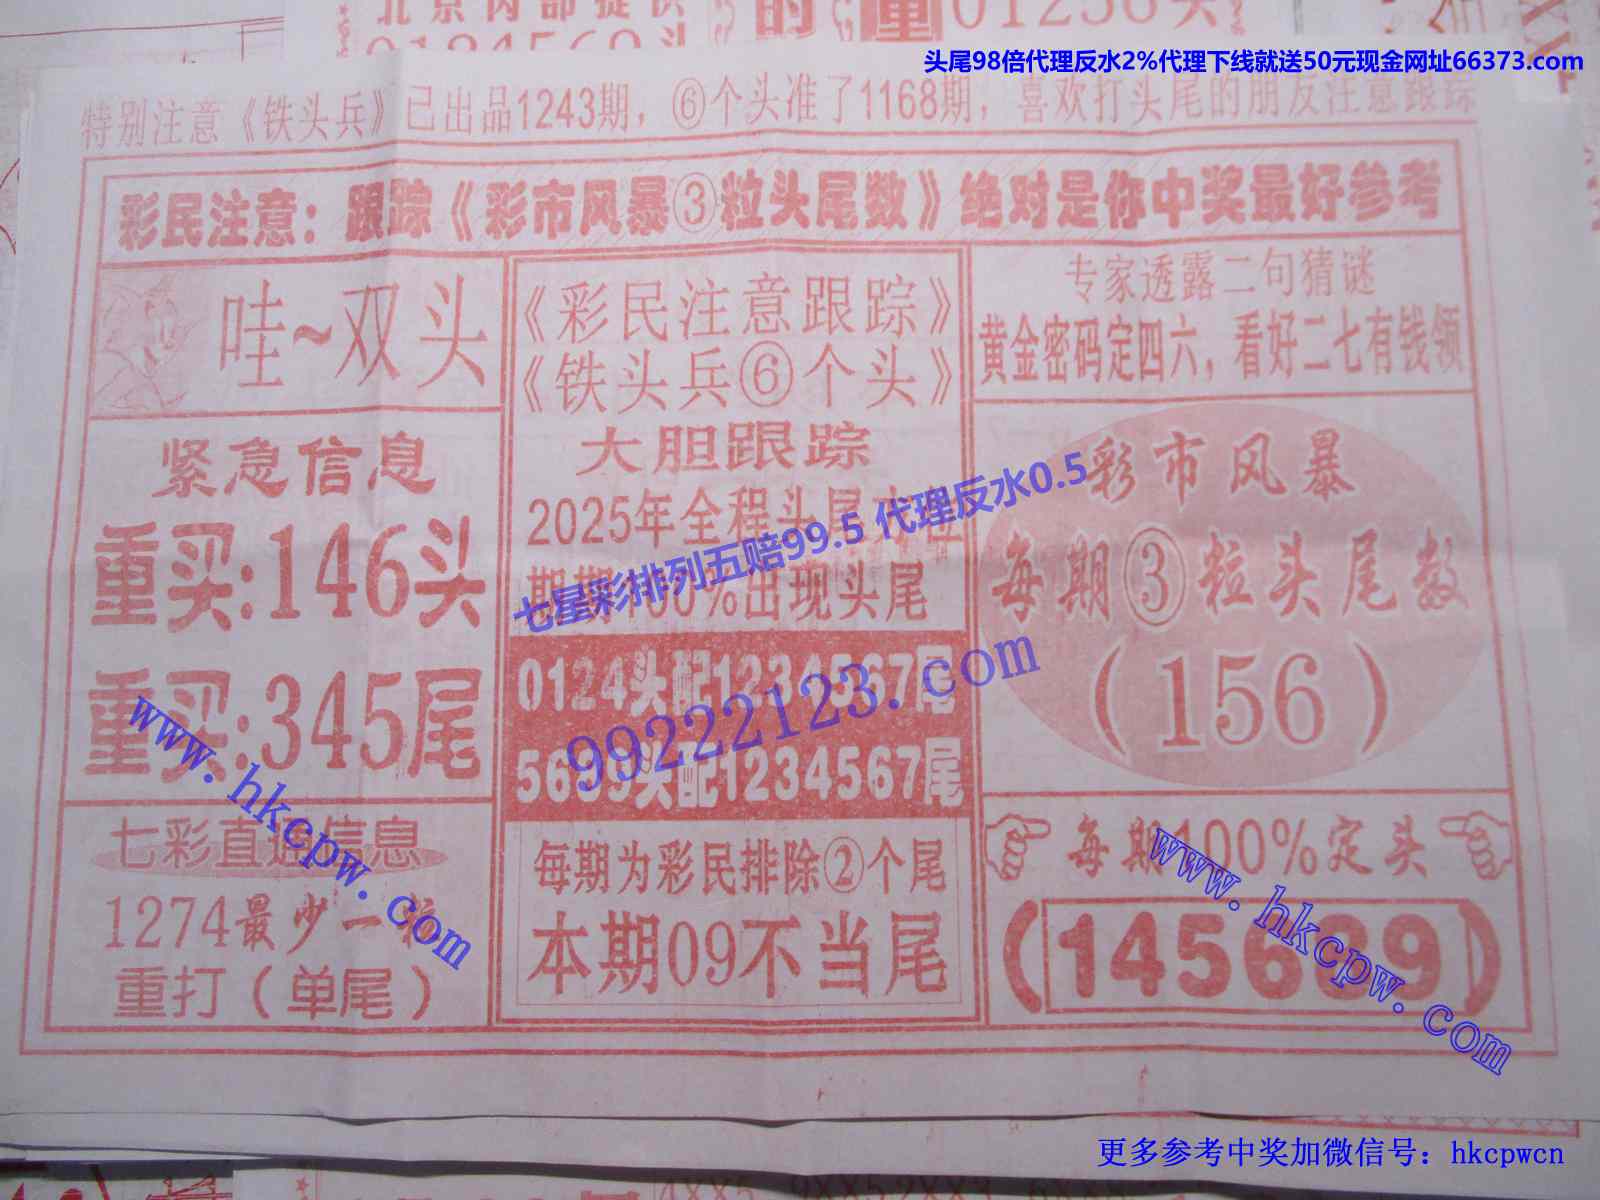 北京内部提供
的
重
01236头
头尾98倍代理反水2%代理下线就送50元现金网址66373.com
特别注意《铁头兵》已出品1243期，⑥个头准了1168期，喜欢打头尾的朋友注意跟踪
彩民注意：跟踪《彩市风暴③粒头尾数》绝对是你中奖最好参考
哇~双头
紧急信息
重买:146头
重买:345尾
七彩直通信息
1274最少一
重打（单尾）
《彩民注意跟踪》
《铁头兵⑥个头》
大胆跟踪
2025年全程头尾
期期100%出现头尾
0124头配1234567尾
5689头配1234567尾
每期为彩民排除②个尾
本期09不当尾
专家透露二句猜谜
黄金密码定四六，看好二七有钱领
彩市风暴
每期③粒头尾数
（156）
每期100%定头
（145689）
七星彩排列五赔99.5 代理反水0.5
99222123.com
www.hkcpw.com
www.hkcpw.com
更多参考中奖加微信号：hkcpwcn